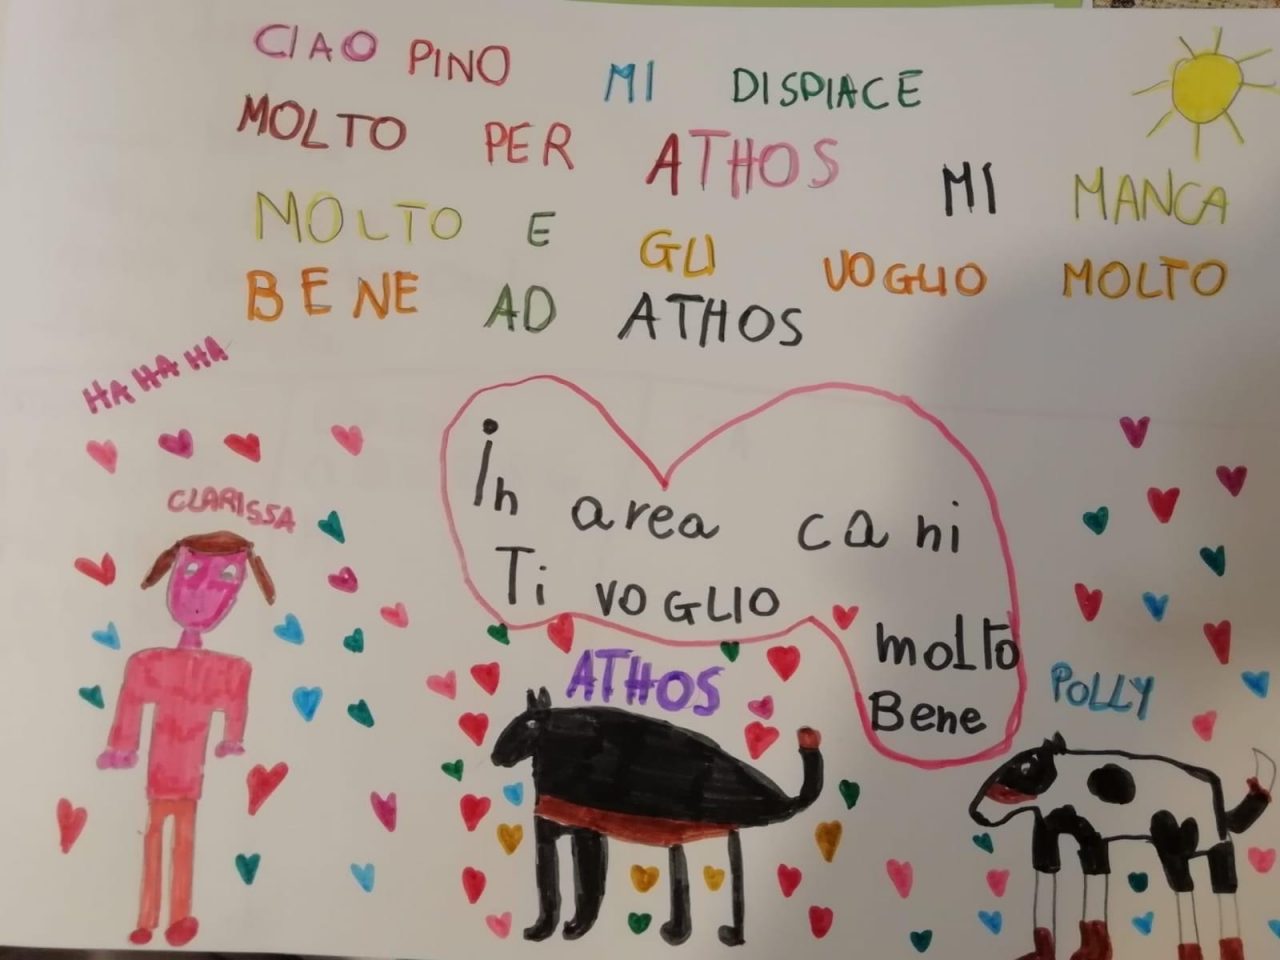 CIAO PINO MI DISPIACE
MOLTO PER ATHOS MI MANCA
MOLTO E GLI VOGLIO MOLTO
BENE AD ATHOS
HA HA HA
In area cani
Ti VOGLIO
molto
Bene
CLARISSA
ATHOS
POLLY